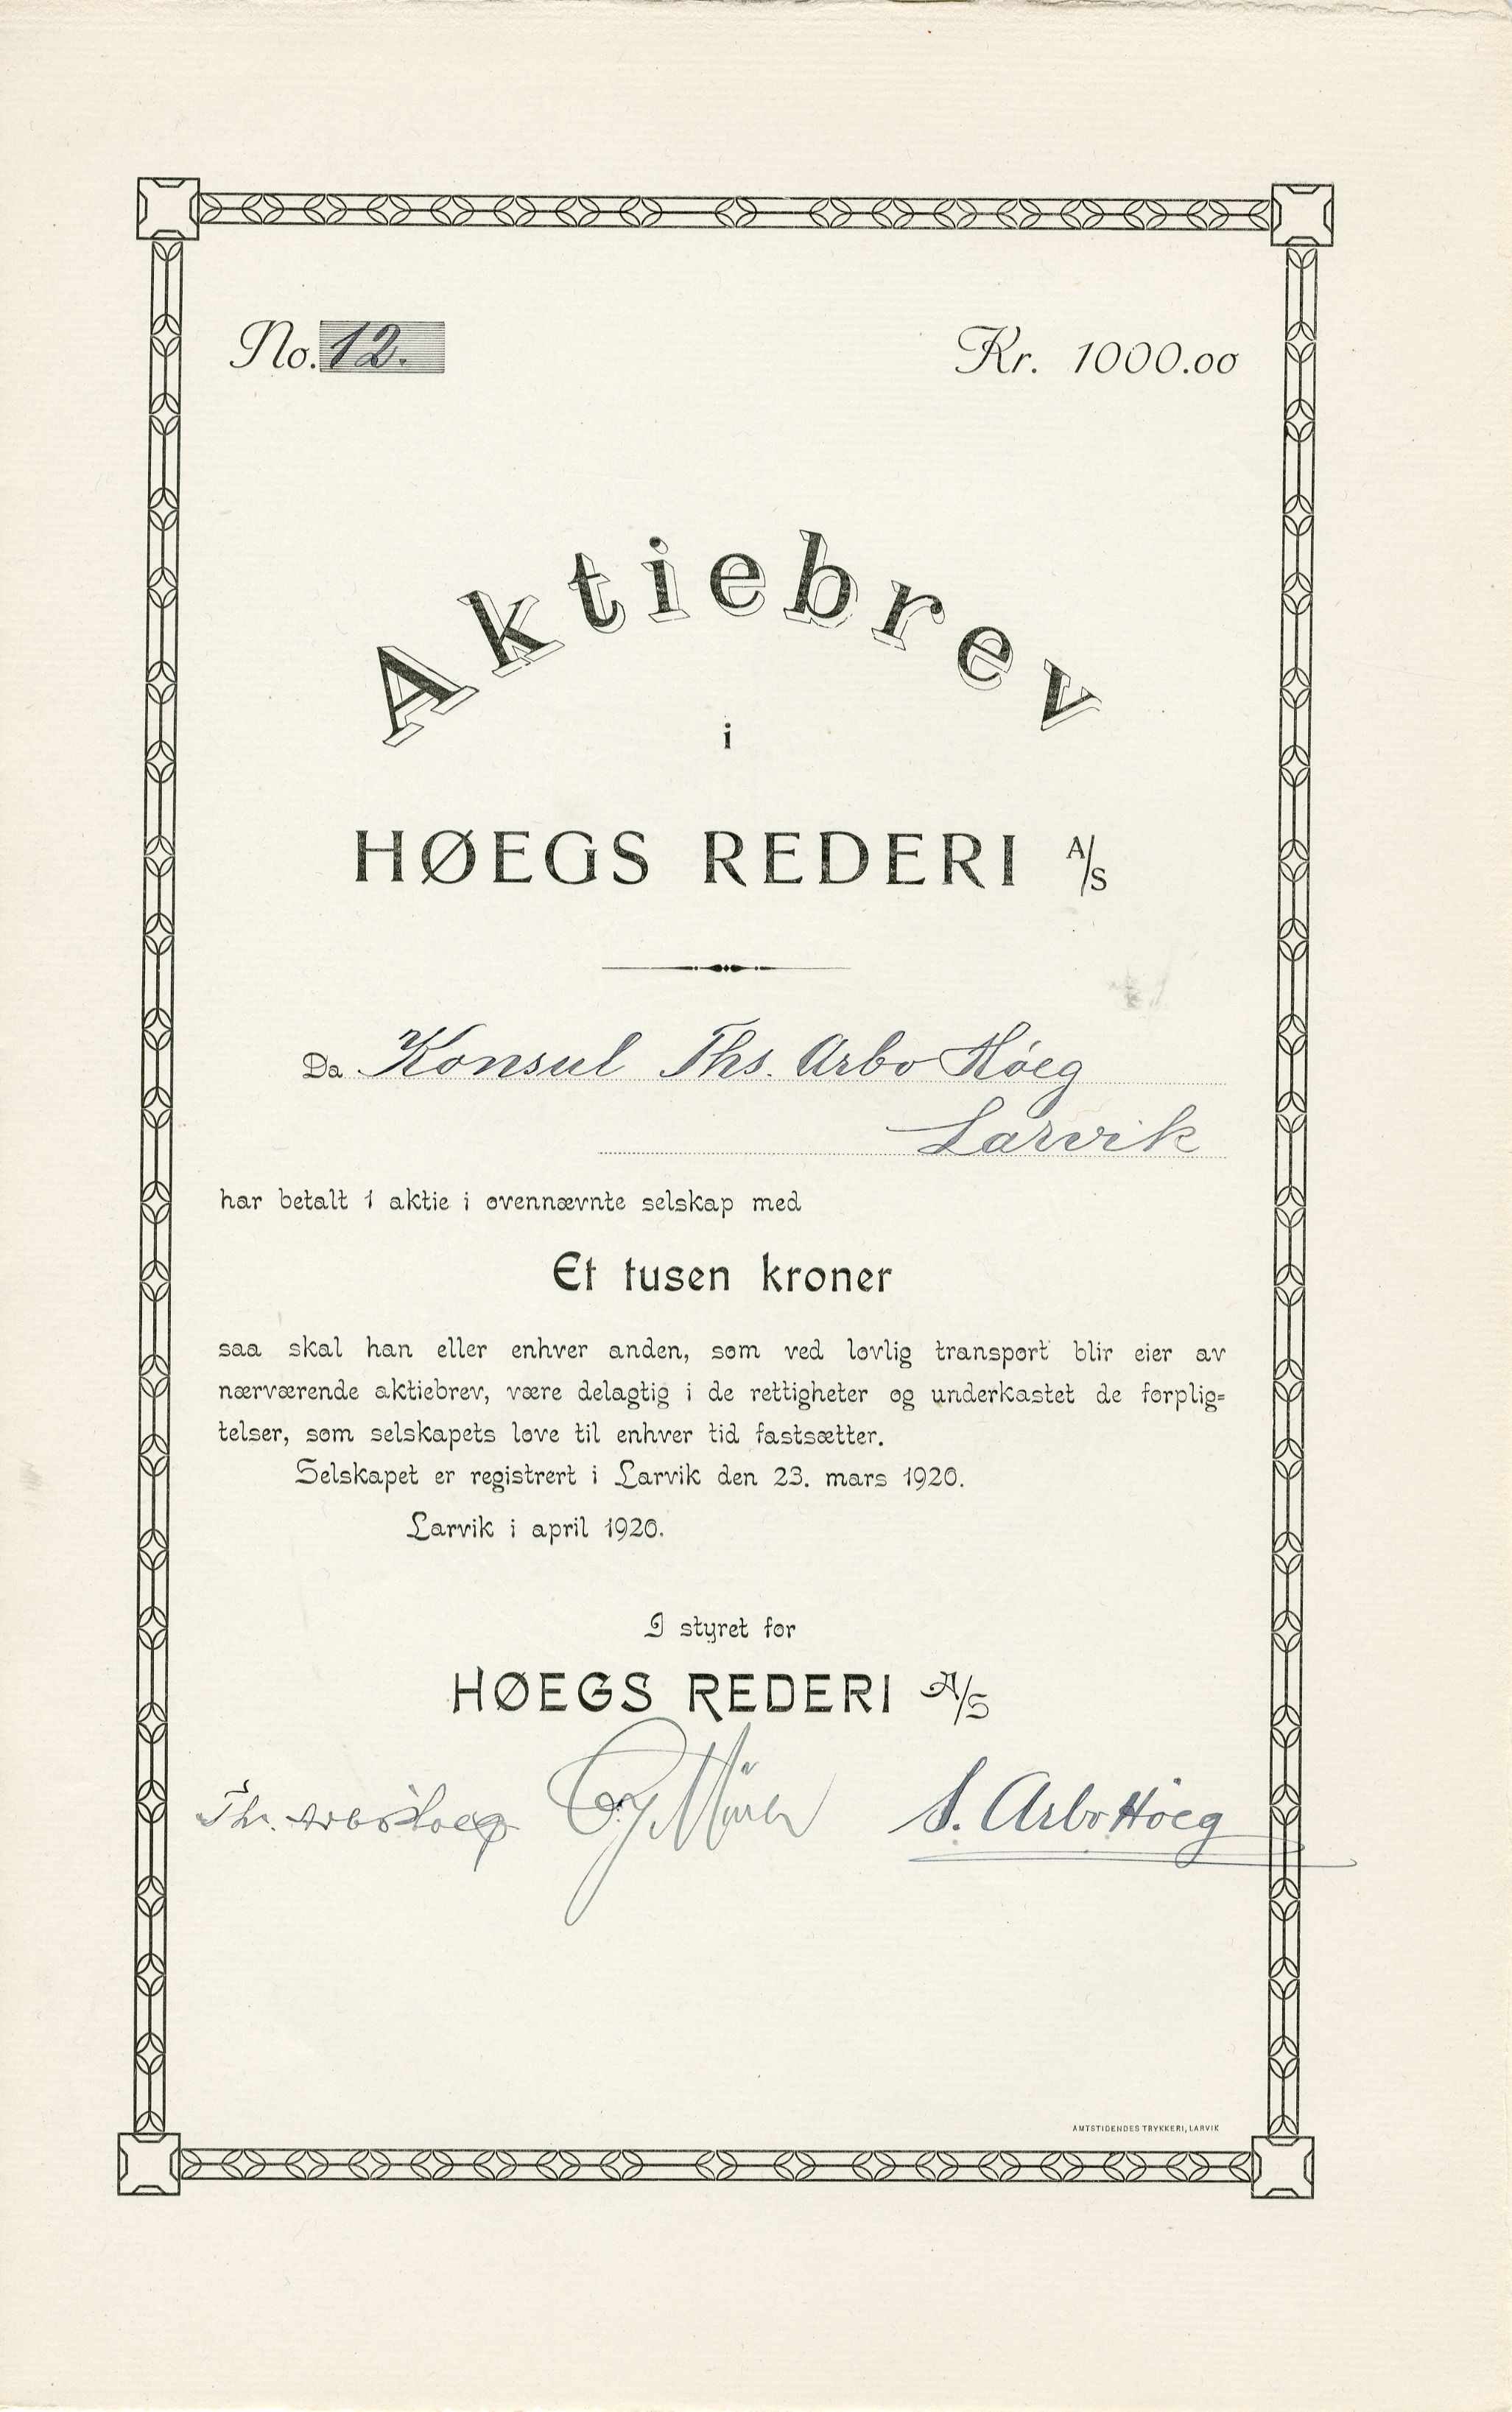 No. 12.
Kr. 1000.00
Aktiebrev
i
HØEGS REDERI A/S
Da Konsul Ths. Arbo Höeg
Larvik
har betalt 1 aktie i ovennævnte selskap med
Et tusen kroner
saa skal han eller enhver anden, som ved lovlig transport blir eier av
nærværende aktiebrev, være delagtig i de rettigheter og underkastet de forplig=
telser, som selskapets love til enhver tid fastsætter.
Selskapet er registrert i Larvik den 23. mars 1920.
Larvik i april 1920.
I styret for
HØEGS REDERI A/S
Th. Arbo Höeg
S. Arbo Höeg
AMTSTIDENDES TRYKKERI, LARVIK